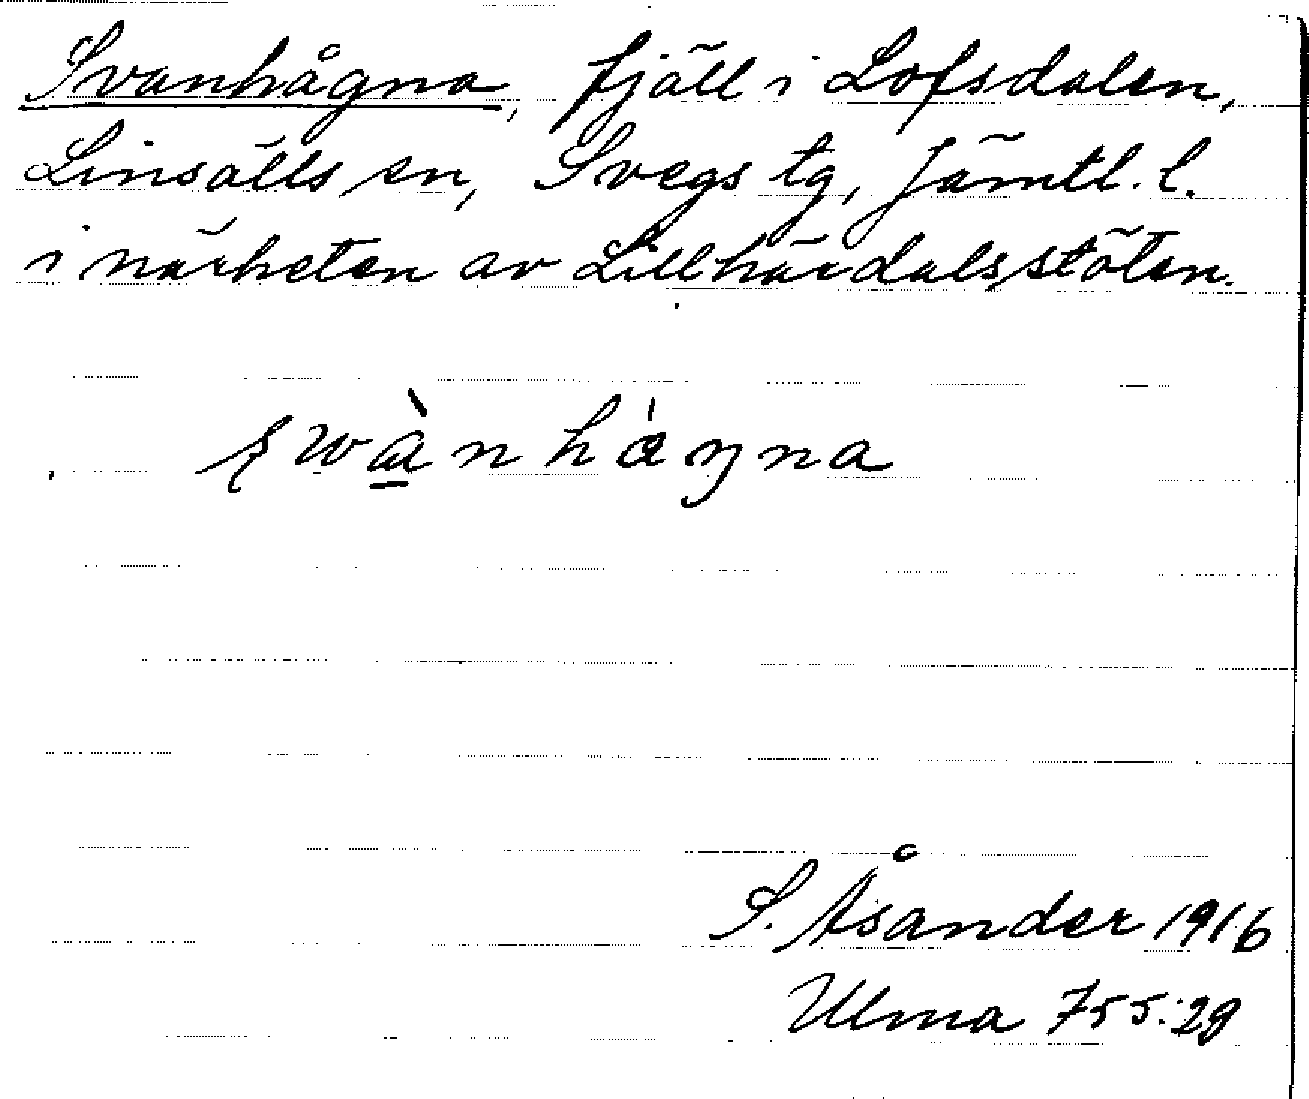 Svanhågna, fjäll i Lofsdalen,
Linsälls sn, Svegs tg, Jämtl. l.
i närheten av Lillhärdalsstöten.
S. Åsander 1916
Ulma 755:29